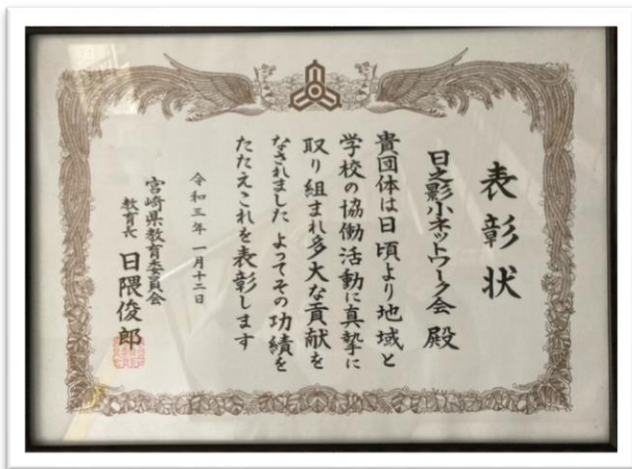 表彰状
日之影小ネットワーク会 殿
貴団体は日頃より地域と
学校の協働活動に真摯に
取り組まれ多大な貢献を
なされました よってその功績を
たたえこれを表彰します
令和三年 一月十二日
宮崎県教育委員会
教育長 日隈俊郎